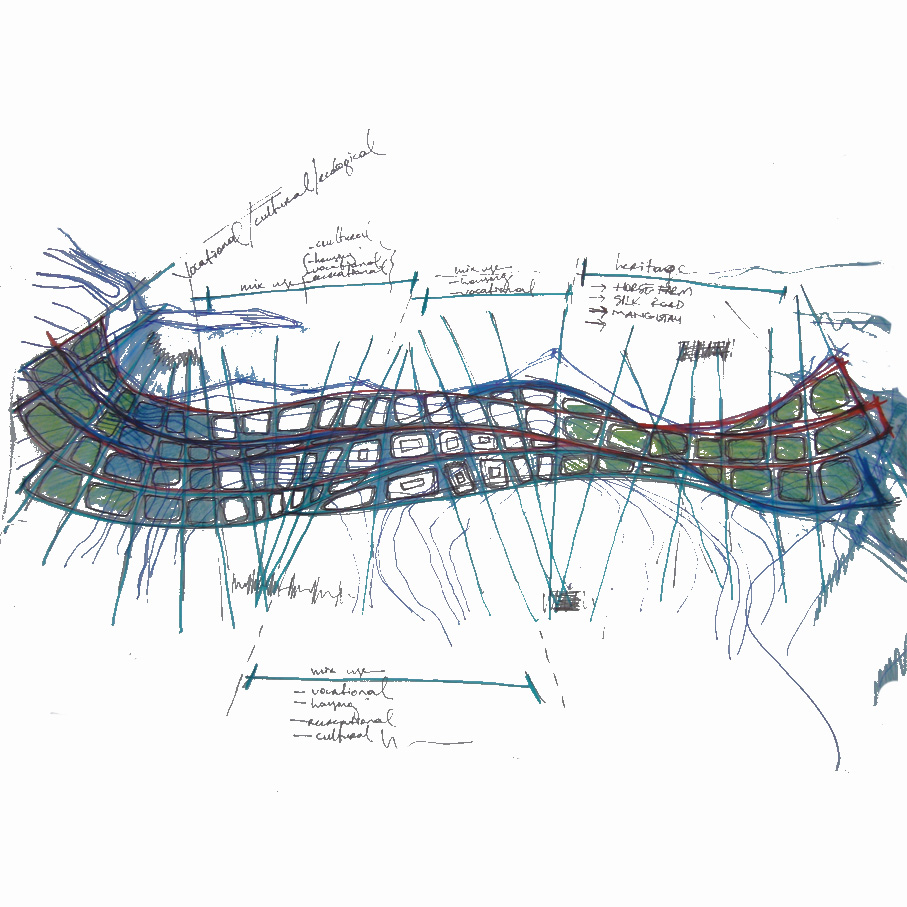 vocational/cultural/ecological
- cultural
- housing
mix use - vocational
- recreational
mix use
- housing
- vocational
heritage
→ HORSE FARM
→ SILK ROAD
→ MANGISTAU
→
mix use
- vocational
- housing
- recreational
- cultural